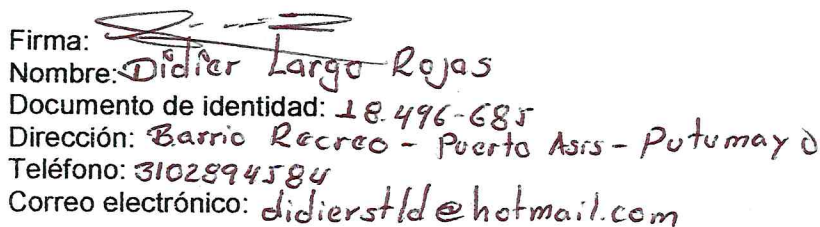 Firma:
Nombre: Didier Largo Rojas
Documento de identidad: 18.496-685
Dirección: Barrio Recreo - Puerto Asis - Putumayo
Teléfono: 3102894584
Correo electrónico: didierstld@hotmail.com